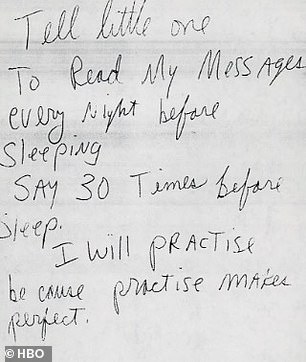 Tell little one
To Read My Messages
every Night before
Sleeping
SAY 30 Times before
sleep.
I will PRACTISE
be cause practise MAKes
perfect.
© HBO